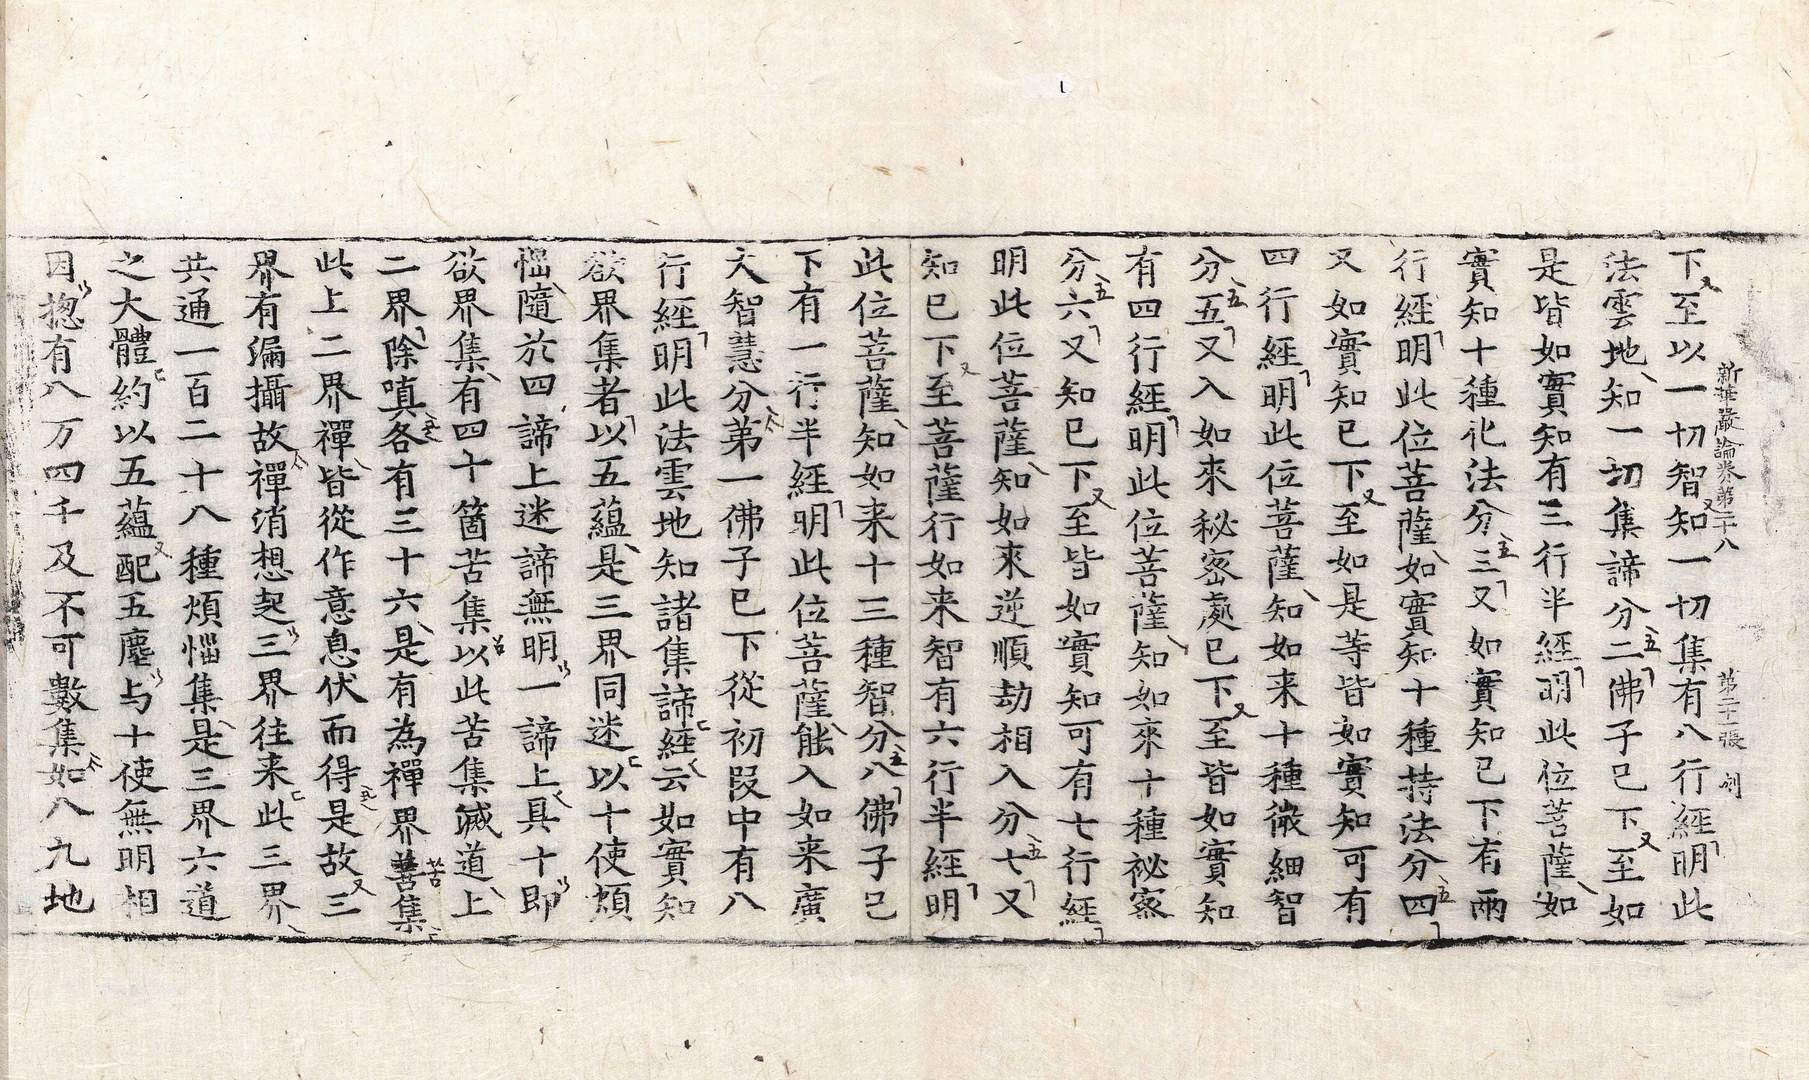 新華嚴論卷第二十八　第二十張
下至以一切智知一切集有八行經明此
法雲地知一切集諦分二佛子已下至如
是皆如實知有三行半經明此位菩薩如
實知十種化法分三又如實知已下有兩
行經明此位菩薩如實知十種持法分四
又如實知已下至如是等皆如實知可有
四行經明此位菩薩知如來十種微細智
分五又入如來秘密處已下至皆如實知
有四行經明此位菩薩知如來十種祕密
分六又知已下至皆如實知可有七行經
明此位菩薩知如來逆順劫相入分七又
知已下至菩薩行如来智有六行半經明
此位菩薩知如来十三種智分八佛子已
下有一行半經明此位菩薩能入如来廣
大智慧分苐一佛子已下從初段中有八
行經明此法雲地知諸集諦經云如實知
欲界集者以五蘊是三界同迷以十使煩
惱隨於四諦上迷諦無明一諦上具十即
欲界集有四十箇苦集以此苦集滅道上
二界除嗔各有三十六是有為禪界善集
苦
此上二界禪皆從作意息伏而得是故三
界有漏攝故禪消想起三界往来此三界
共通一百二十八種煩惱集是三界六道
之大體約以五蘊配五塵与十使無明相
因揔有八万四千及不可數集如八九地